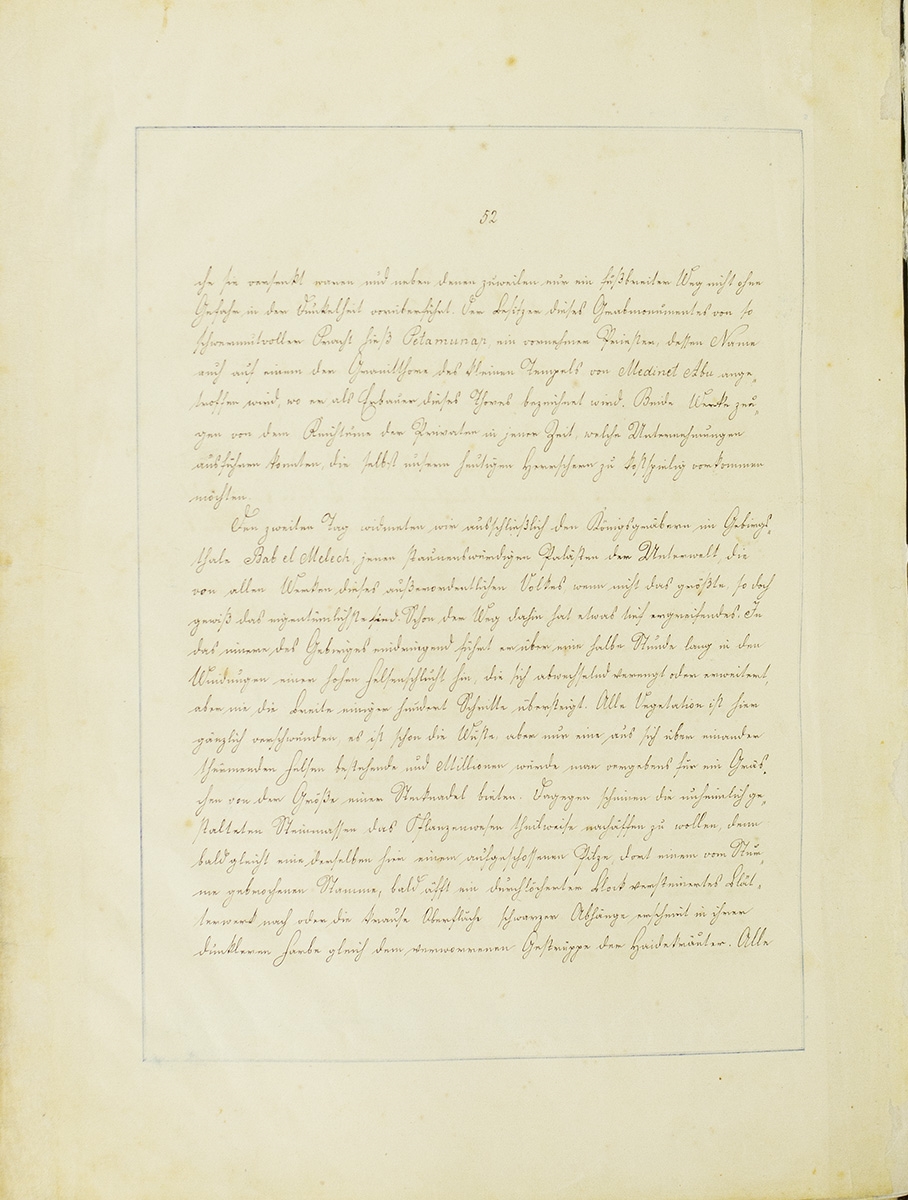 52
che sie versenkt waren und neben denen zuweilen nur ein fußbreiter Weg nicht ohne
Gefahr in der Dunkelheit vorüberführt. Der Besitzer dieses Grabmonumentes von so
schwermuthvoller Pracht hieß Petamunap, ein vornehmer Priester, dessen Name
auch auf einem der Granitthore des kleinen Tempels von Medinet Abu ange„
troffen wird, wo er als Erbauer dieses Thores bezeichnet wird. Beide Werke zeu„
gen von dem Reichtume der Privaten in jener Zeit, welche Unternehmungen
ausführen konnten, die selbst unsern heutigen Herrschern zu kostspielig vorkommen
möchten.
Den zweiten Tag widmeten wir ausschließlich den Königsgräbern im Gebirgs„
thale Bab el Melech, jenen staunenswürdigen Palästen der Unterwelt, die
von allen Werken dieses außerordentlichen Volkes wenn nicht das größte, so doch
gewiß das eigentümlichste sind. Schon der Weg dahin hat etwas tief ergreifendes. In
das innere des Gebirges eindringend führt er über eine halbe Stunde lang in den
Windungen einer hohen Felsenschlucht hin, die sich abwechselnd verengt oder erweitert,
aber nie die Breite einiger hundert Schritte übersteigt. Alle Vegetation ist hier
gänzlich verschwunden, es ist schon die Wüste, aber nur eine aus sich über einander
thürmenden Felsen bestehende und Millionen würde man vergebens für ein Gräs„
chen von der Größe einer Stecknadel bieten. Dagegen scheinen die unheimlich ge„
stalteten Steinmassen das Pflanzenwesen theilweise nachäffen zu wollen, denn
bald gleicht eine derselben hier einem aufgeschossenen Pilze, dort einem vom Stur„
me gebrochenen Stamme, bald äfft ein durchlöcherter Block versteinertes Blät„
terwerk nach oder die krause Oberfläche schwarzer Abhänge erscheint in ihrer
dunkleren Farbe gleich dem verworrenen Gestrüppe der Haidekräuter. Alle